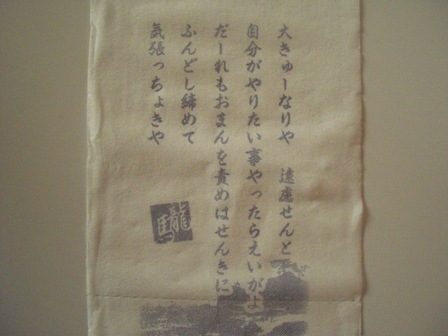 大きゅーなりや 遠慮せんと
自分がやりたい事やったらえいがよ
だーれもおまんを責めはせんきに
ふんどし締めて
気張っちょきや
龍馬